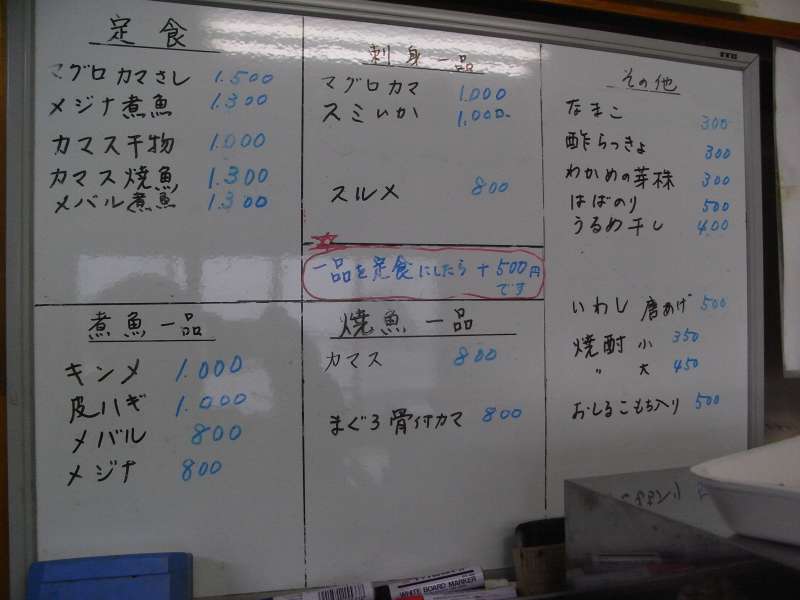 定食
マグロカマさし 1.500
メジナ煮魚 1.300
カマス干物 1.000
カマス焼魚 1.300
メバル煮魚 1.300
刺身一品
マグロカマ 1.000
スミいか 1.000
スルメ 800
一品を定食にしたら+500円
です
煮魚一品
キンメ 1.000
皮ハギ 1.000
メバル 800
メジナ 800
焼魚一品
カマス 800
まぐろ骨付カマ 800
その他
なまこ 300
酢らっきょ 300
わかめの芽株 300
はばのり 500
うるめ干し 400
いわし唐あげ 500
焼酎小 350
〃 大 450
おしるこもち入り 500
WHITE BOARD MARKER